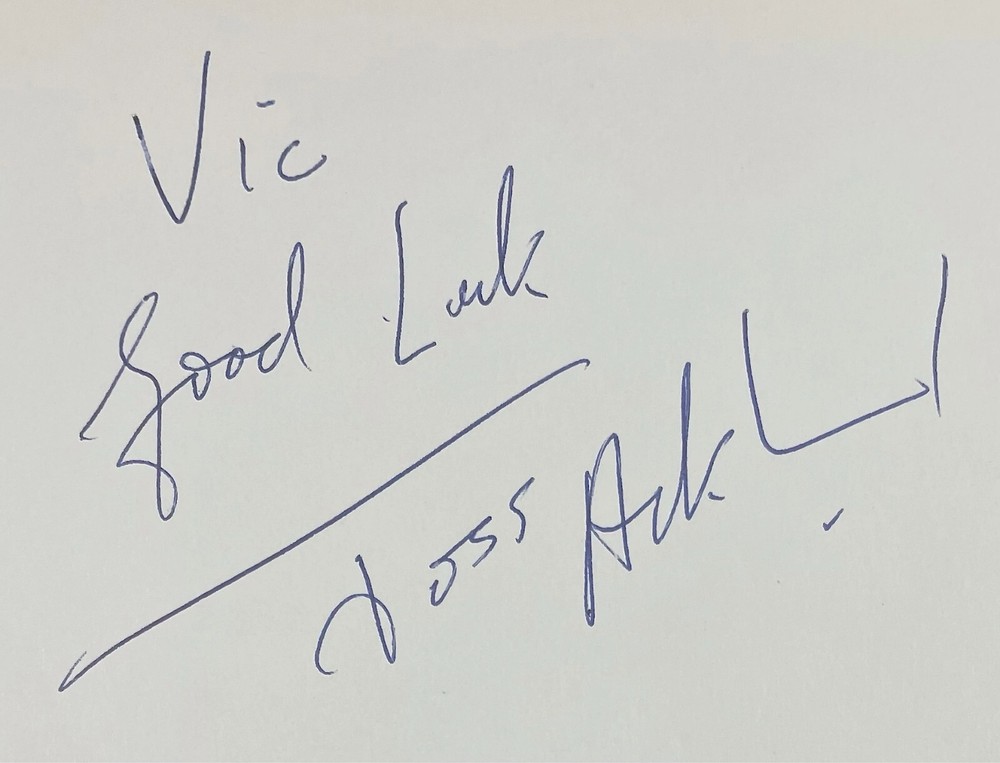 Vic
Good Luck
Joss Ackland